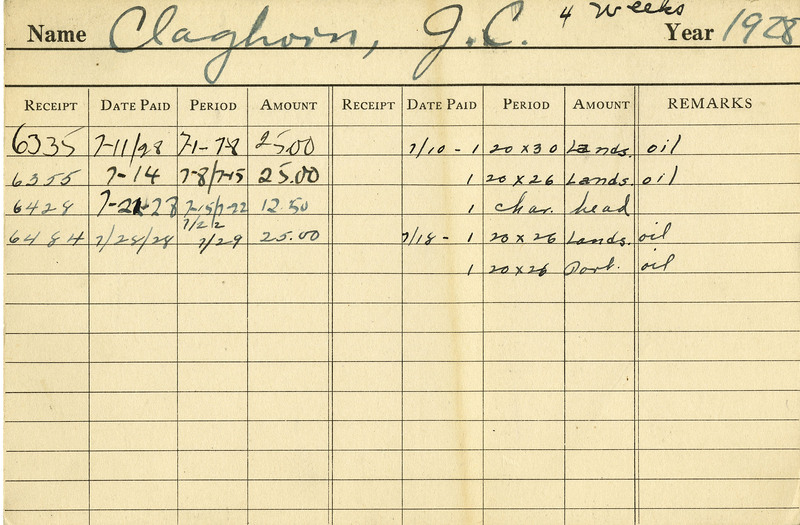 Name Claghorn, J.C. 4 Weeks Year 1928
RECEIPT DATE PAID PERIOD AMOUNT RECEIPT DATE PAID PERIOD AMOUNT REMARKS
6335 7-11/28 7-1- 7-8 25.00 7/10 - 1 20 x 30 Lands. oil
6355 7-14 7-8/7-15 25.00 1 20 x 26 Lands. oil
6428 7-21-28 7-15/7-22 12.50 1 char. head
6484 7/28/28 7/22 7/29 25.00 7/18 - 1 20 x 26 Lands. oil
1 20 x 26 Port. oil